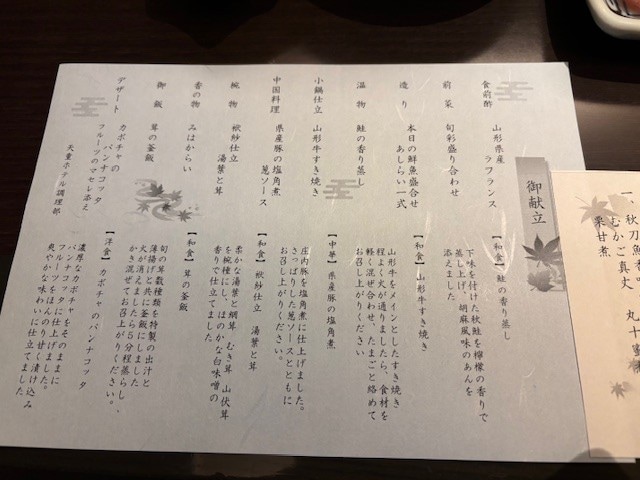 御献立
食前酢 山形県産
ラフランス
前菜 旬彩盛り合わせ
造り 本日の鮮魚盛合せ
あしらい一式
温物 鮭の香り蒸し
小鍋仕立 山形牛すき焼き
中国料理 県産豚の塩角煮
葱ソース
椀物 袱紗仕立
湯葉と茸
香の物 みはからい
御飯 茸の釜飯
デザート カボチャの
パンナコッタ
フルーツのマセレ添え
天童ホテル調理部
【和食】鮭の香り蒸し
下味を付けた秋鮭を檸檬の香りで
蒸し上げ、胡麻風味のあんを
添えました
【和食】山形牛すき焼き
山形牛をメインとしたすき焼き
程よく火が通りましたら、食材を
軽く混ぜ合わせ、たまごと絡めて
お召し上がりください
【中華】県産豚の塩角煮
庄内豚を塩角煮に仕上げました。
さっぱりした葱ソースとともに
お召し上がりください。
【和食】袱紗仕立 湯葉と茸
柔かな湯葉と鯛茸 むき茸 山伏茸
を椀種に、ほのかな白味噌の
香りで仕立てました
【和食】茸の釜飯
旬の茸数種類を特製の出汁と
薄揚げと共に釜飯にしました
火が消えましたら5分程蒸らし、
かき混ぜてお召上がりください。
【洋食】カボチャのパンナコッタ
濃厚なカボチャをそのままに
パンナコッタに仕上げました。
フルーツをほんのり甘く漬け込み
爽やかな味わいに仕立てました
一、秋刀魚 丸十
むかご真丈
栗甘煮